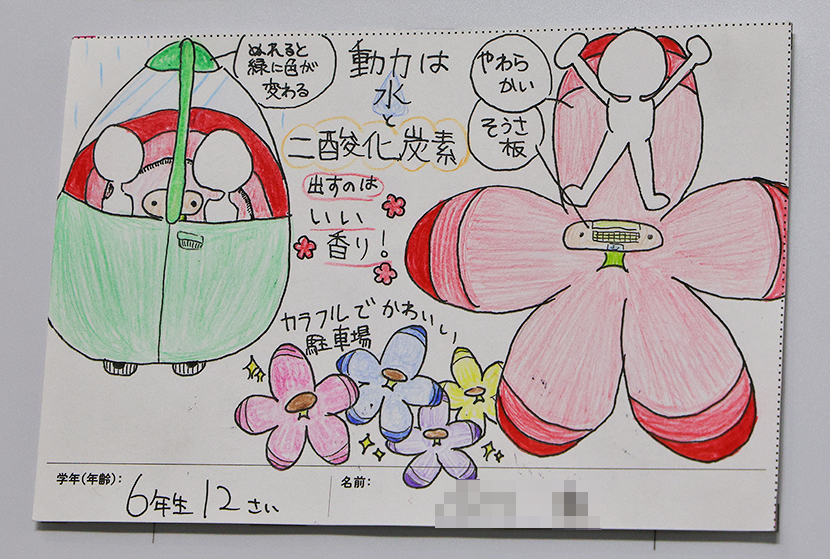 ぬれると
緑に色が
変わる
動力は
水
と
二酸化炭素
出すのは
いい
香り！
やわら
かい
そうさ
板
カラフルでかわいい
駐車場
学年(年齢)： 6年生 12さい
名前：